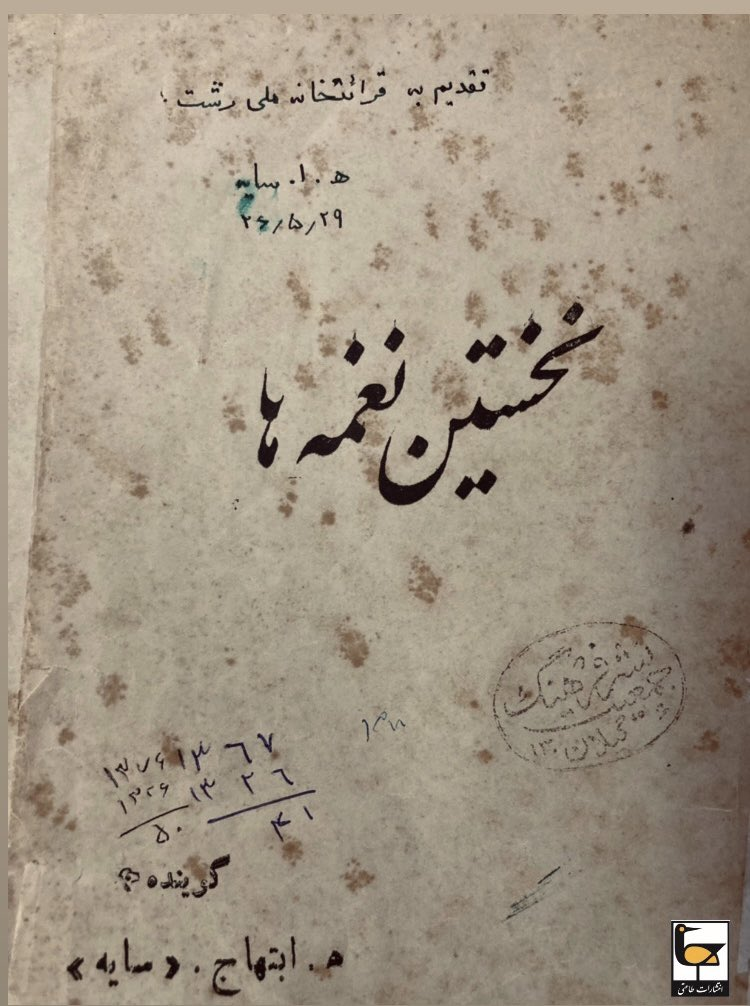 تقدیم به قرائتخانه ملی رشت .
ه . ا . سایه
۲۶٫۵٫۲۹
نخستین نغمه ها
نشر فرهنگ
جمعیت
گیلان ۱۳۰
۱۳۷۶ ۱۳ ۶۷
۱۳۲۶ ۱۳ ۲۶
۵۰ ۴۱
گوینده :
ه . ابتهاج . « سایه »
انتشارات طاعتی